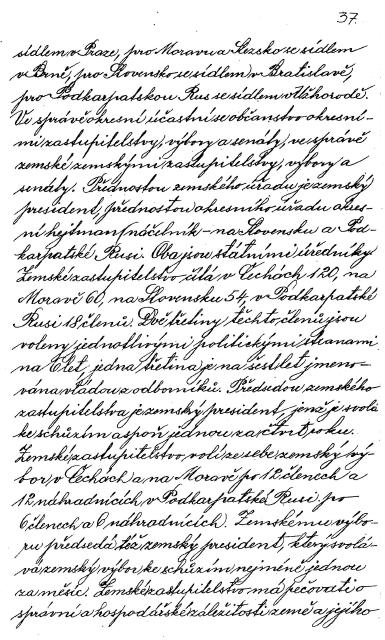 37.
sídlem v Praze, pro Moravu a Slezsko se sídlem
v Brně, pro Slovensko se sídlem v Bratislavě,
pro Podkarpatskou Rus se sídlem v Užhorodě.
Ve správě okresní účastní se občanstvo okresní-
mi zastupitelstvy, výbory a senáty, ve správě
zemské zemskými zastupitelstvy, výbory a
senáty. Přednostou zemského úřadu je zemský
president, přednostou okresního úřadu okres-
ní hejtman (náčelník - na Slovensku a Pod-
karpatské Rusi. Oba jsou státními úředníky.
Zemské zastupitelstvo čítá v Čechách 120, na
Moravě 60, na Slovensku 54, v Podkarpatské
Rusi 18 členů. Dvě třetiny těchto členů jsou
voleny jednotlivými politickými stranami
na 6 let, jedna třetina je na šest let jmeno-
vána vládou z odborníků. Předsedou zemského
zastupitelstva je zemský president, jenž je svolá
ke schůzím aspoň jednou za čtvrt roku.
Zemské zastupitelstvo volí ze sebe zemský vý-
bor v Čechách a na Moravě po 12 členech a
12 náhradnících, v Podkarpatské Rusi po
6 členech a 6 náhradnících. Zemskému výbo-
ru předsedá též zemský president, který svolá-
vá zemský výbor ke schůzím nejméně jednou
za měsíc. Zemské zastupitelstvo má pečovati o
správní a hospodářské záležitosti země a jejího